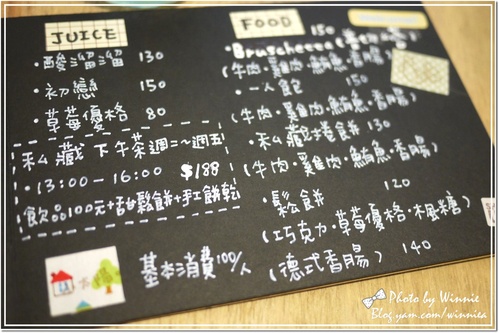 JUICE
・酸溜溜 130
・初戀 150
・草莓優格 80
私藏 下午茶 週二~週五
・13:00-16:00 $188
飲品100元+甜鬆餅+手工餅乾
基本消費100/人
FOOD
・Bruschetta 150
(牛肉・雞肉・鮪魚・香腸)
・一人食包 150
(牛肉・雞肉・鮪魚・香腸)
・私藏捲餅 130
(牛肉・雞肉・鮪魚・香腸)
・鬆餅 120
(巧克力・草莓優格・楓糖)
(德式香腸) 140
Photo by Winnie
Blog.yam.com/winniea